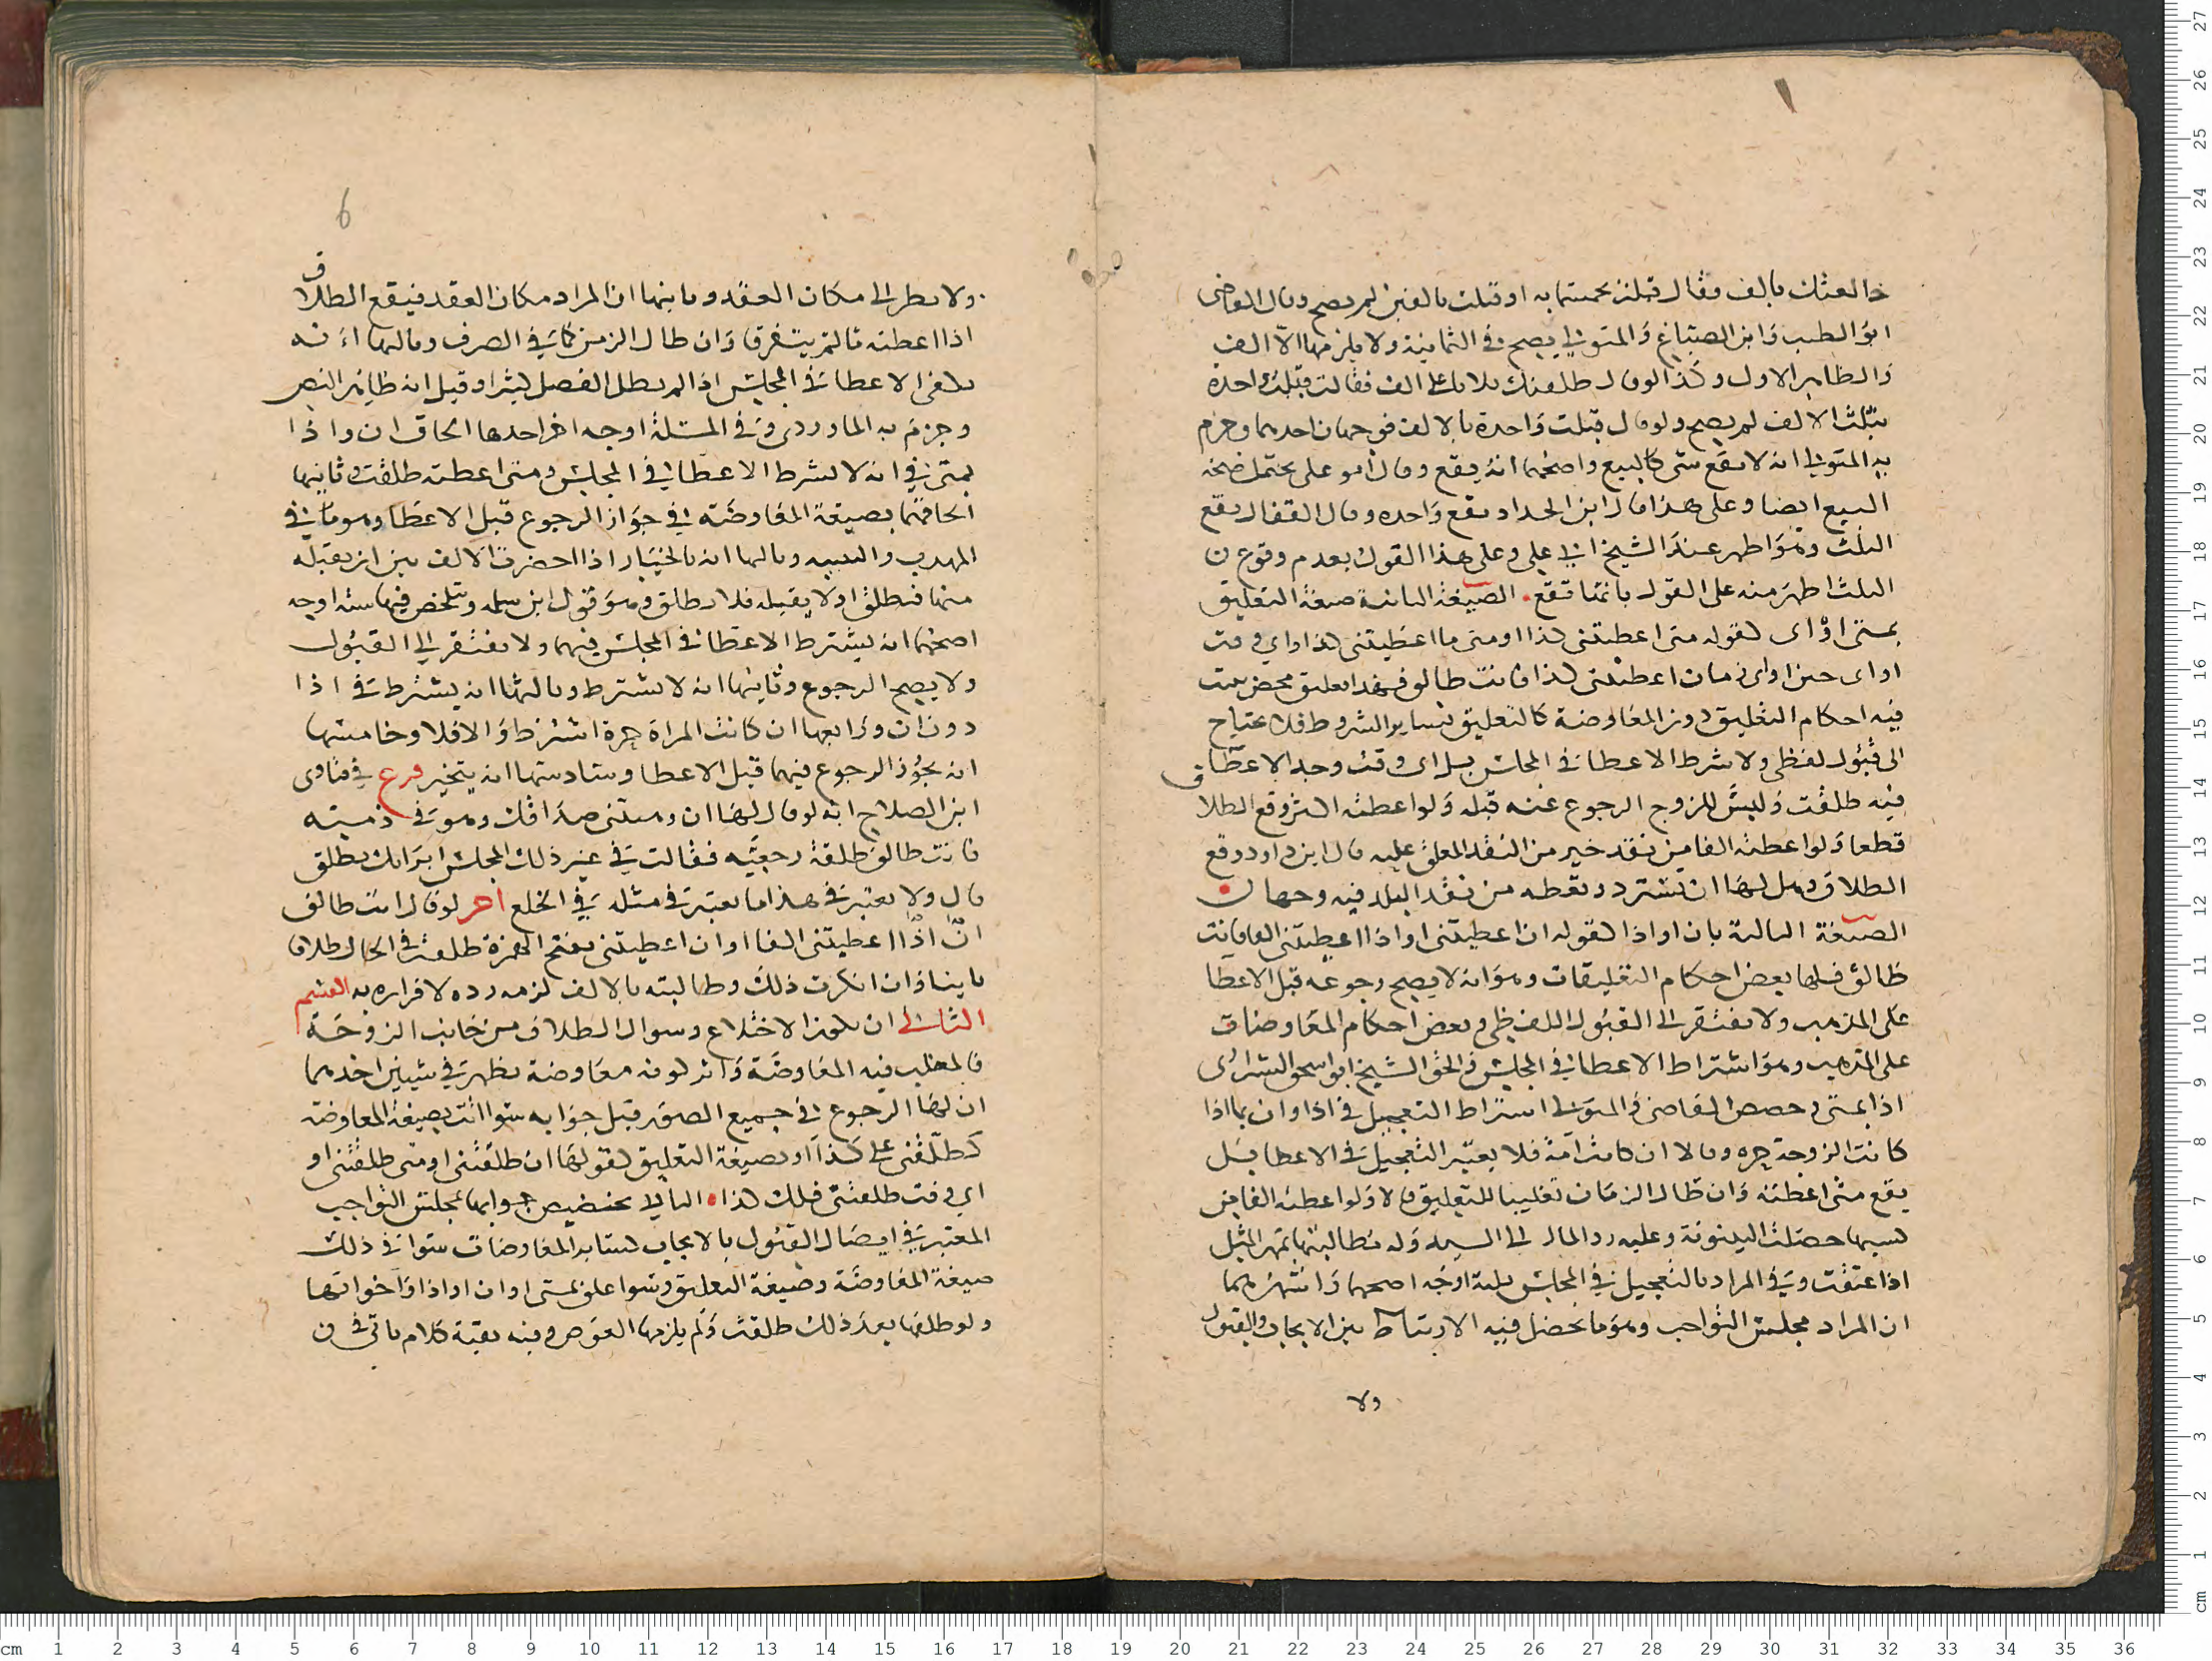 خالعتك بالف فقال قبلت بخمسمايه او قبلت بالفين لم يصح وقال القاضي
ابو الطيب وابن الصباغ والمتولي يصح في الثانية ولا يلزمها الا الف
والظاهر الاول وكذا لو قال طلقتك ثلاثا على الف فقالت قبلت واحدة
بثلث الالف لم يصح ولو قال قبلت واحدة بالالف فوجهان احدهما وجزم
به المتولي انه لا يقع شي كالبيع واصحهما انه يقع وقال ابو علي يحتمل صحة
البيع ايضا وعلى هذا قال ابن الحداد يقع واحده وقال القفال يقع
الثلث وهو اظهر عند الشيخ ابي علي وعلى هذا القول بعدم وقوع
الثلث اظهر منه على القول بانها تقع الصيغة الثانية صيغة التعليق
بمتى او اي كقوله متى اعطيتني كذا او متى ما اعطيتني كذا او اي وقت
او اي حين او اي زمان اعطيتني كذا فانت طالق فهذا تعليق محض يثبت
فيه احكام التعليق دون المعاوضة كالتعليق بساير الشروط فلا يحتاج
الى قبول لفظي ولا يشرط الاعطا في المجلس بل اي وقت وجد الاعطا
فيه طلقت وليس للزوج الرجوع عنه قبله ولو اعطته اكثر وقع الطلاق
قطعا ولو اعطته الفا من نقد خير من النقد المعلق عليه قال ابن داود وقع
الطلاق وهل لها ان تسترد وتعطه من نقد البلد فيه وجهان
الصيغة الثالثة بان او اذا كقوله ان اعطيتني او اذا اعطيتني الفا فانت
طالق فلها بعض احكام التعليقات وهو انه لا يصح رجوعه قبل الاعطا
على المذهب ولا يفتقر الى القبول اللفظي وبعض احكام المعاوضات
على المذهب وهو اشتراط الاعطا في المجلس والحق الشيخ ابو اسحق الشيرازي
اذا بمتى وخصص القاضي والمتولي اشتراط التعجيل في اذا وان بما اذا
كانت الزوجة حره وقالا ان كانت امة فلا يعتبر التعجيل في الاعطا بل
يقع متى اعطته وان طال الزمان تغليبا للتعليق قالا ولو اعطته الفا من
كسبها حصلت البينونة وعليه رد المال الى السيد وله مطالبتها بمهر المثل
اذا عتقت وفي المراد بالتعجيل في المجلس ثلثة اوجه اصحها واشهرهما
ان المراد مجلس التواجب وهو ما يحصل فيه الارتباط بين الايجاب والقبول
ولا
6
ولا ينظر الى مكان العقد وثانيها ان المراد مكان العقد فيقع الطلاق
اذا اعطته ما لم يتفرقا وان طال الزمن كما في الصرف وثالثها انه
يكفي الاعطا في المجلس اذا لم يطل الفصل كثيرا وقيل انه ظاهر النص
وجزم به الماوردي وفي المسئلة اوجه اخر احدها الحاق ان واذا
بمتى في انه لا يشرط الاعطا في المجلس ومتى اعطته طلقت وثانيها
الحاقهما بصيغة المعاوضة في جواز الرجوع قبل الاعطا وهو ما في
المهذب والتنبيه وثالثها انه بالخيار اذا احضرت الالف بين ان يقبله
منها فتطلق او لا يقبله فلا تطلق وهو قول ابن سلمه وتلخص فيها ستة اوجه
اصحها انه يشترط الاعطا في المجلس فيهما ولا يفتقر الى القبول
ولا يصح الرجوع وثانيها انه لا يشترط وثالثها انه يشترط في اذا
دون ان ورابعها ان كانت المراة حرة اشترط والا فلا وخامسها
انه يجوز الرجوع فيهما قبل الاعطا وسادسها انه يتخير فرع في فتاوى
ابن الصلاح انه لو قال لها ان وهبتني صداقك وهو في ذمته
فانت طالق طلقة رجعيه فقالت في غير ذلك المجلس ابراتك تطلق
قال ولا يعتبر في هذا ما يعتبر في مثله في الخلع اخر لو قال انت طالق
ان اذا اعطيتني الفا او ان اعطيتني بفتح الهمزة طلقت في الحال طلاقا
باينا فان انكرت ذلك وطالبته بالالف لزمه رده لاقراره به القسم
الثاني ان يكون الاختلاع وسوال الطلاق من جانب الزوجة
فالمغلب فيه المعاوضة واثر كونه معاوضة يظهر في شيين احدهما
ان لها الرجوع في جميع الصور قبل جوابه سوا اتت بصيغة المعاوضة
كطلقني على كذا او بصيغة التعليق كقولها ان طلقتني او متى طلقتني او
اي وقت طلقتني فلك كذا الثاني تخصيص جوابها بمجلس التواجب
المعتبر في ايصال القبول بالايجاب كساير المعاوضات سوا في ذلك
صيغة المعاوضة وصيغة التعليق وسوا علق بمتى او ان او اذا واخواتها
ولو طلقها بعد ذلك طلقت ولم يلزمها العوض وفيه بقية كلام ياتي في